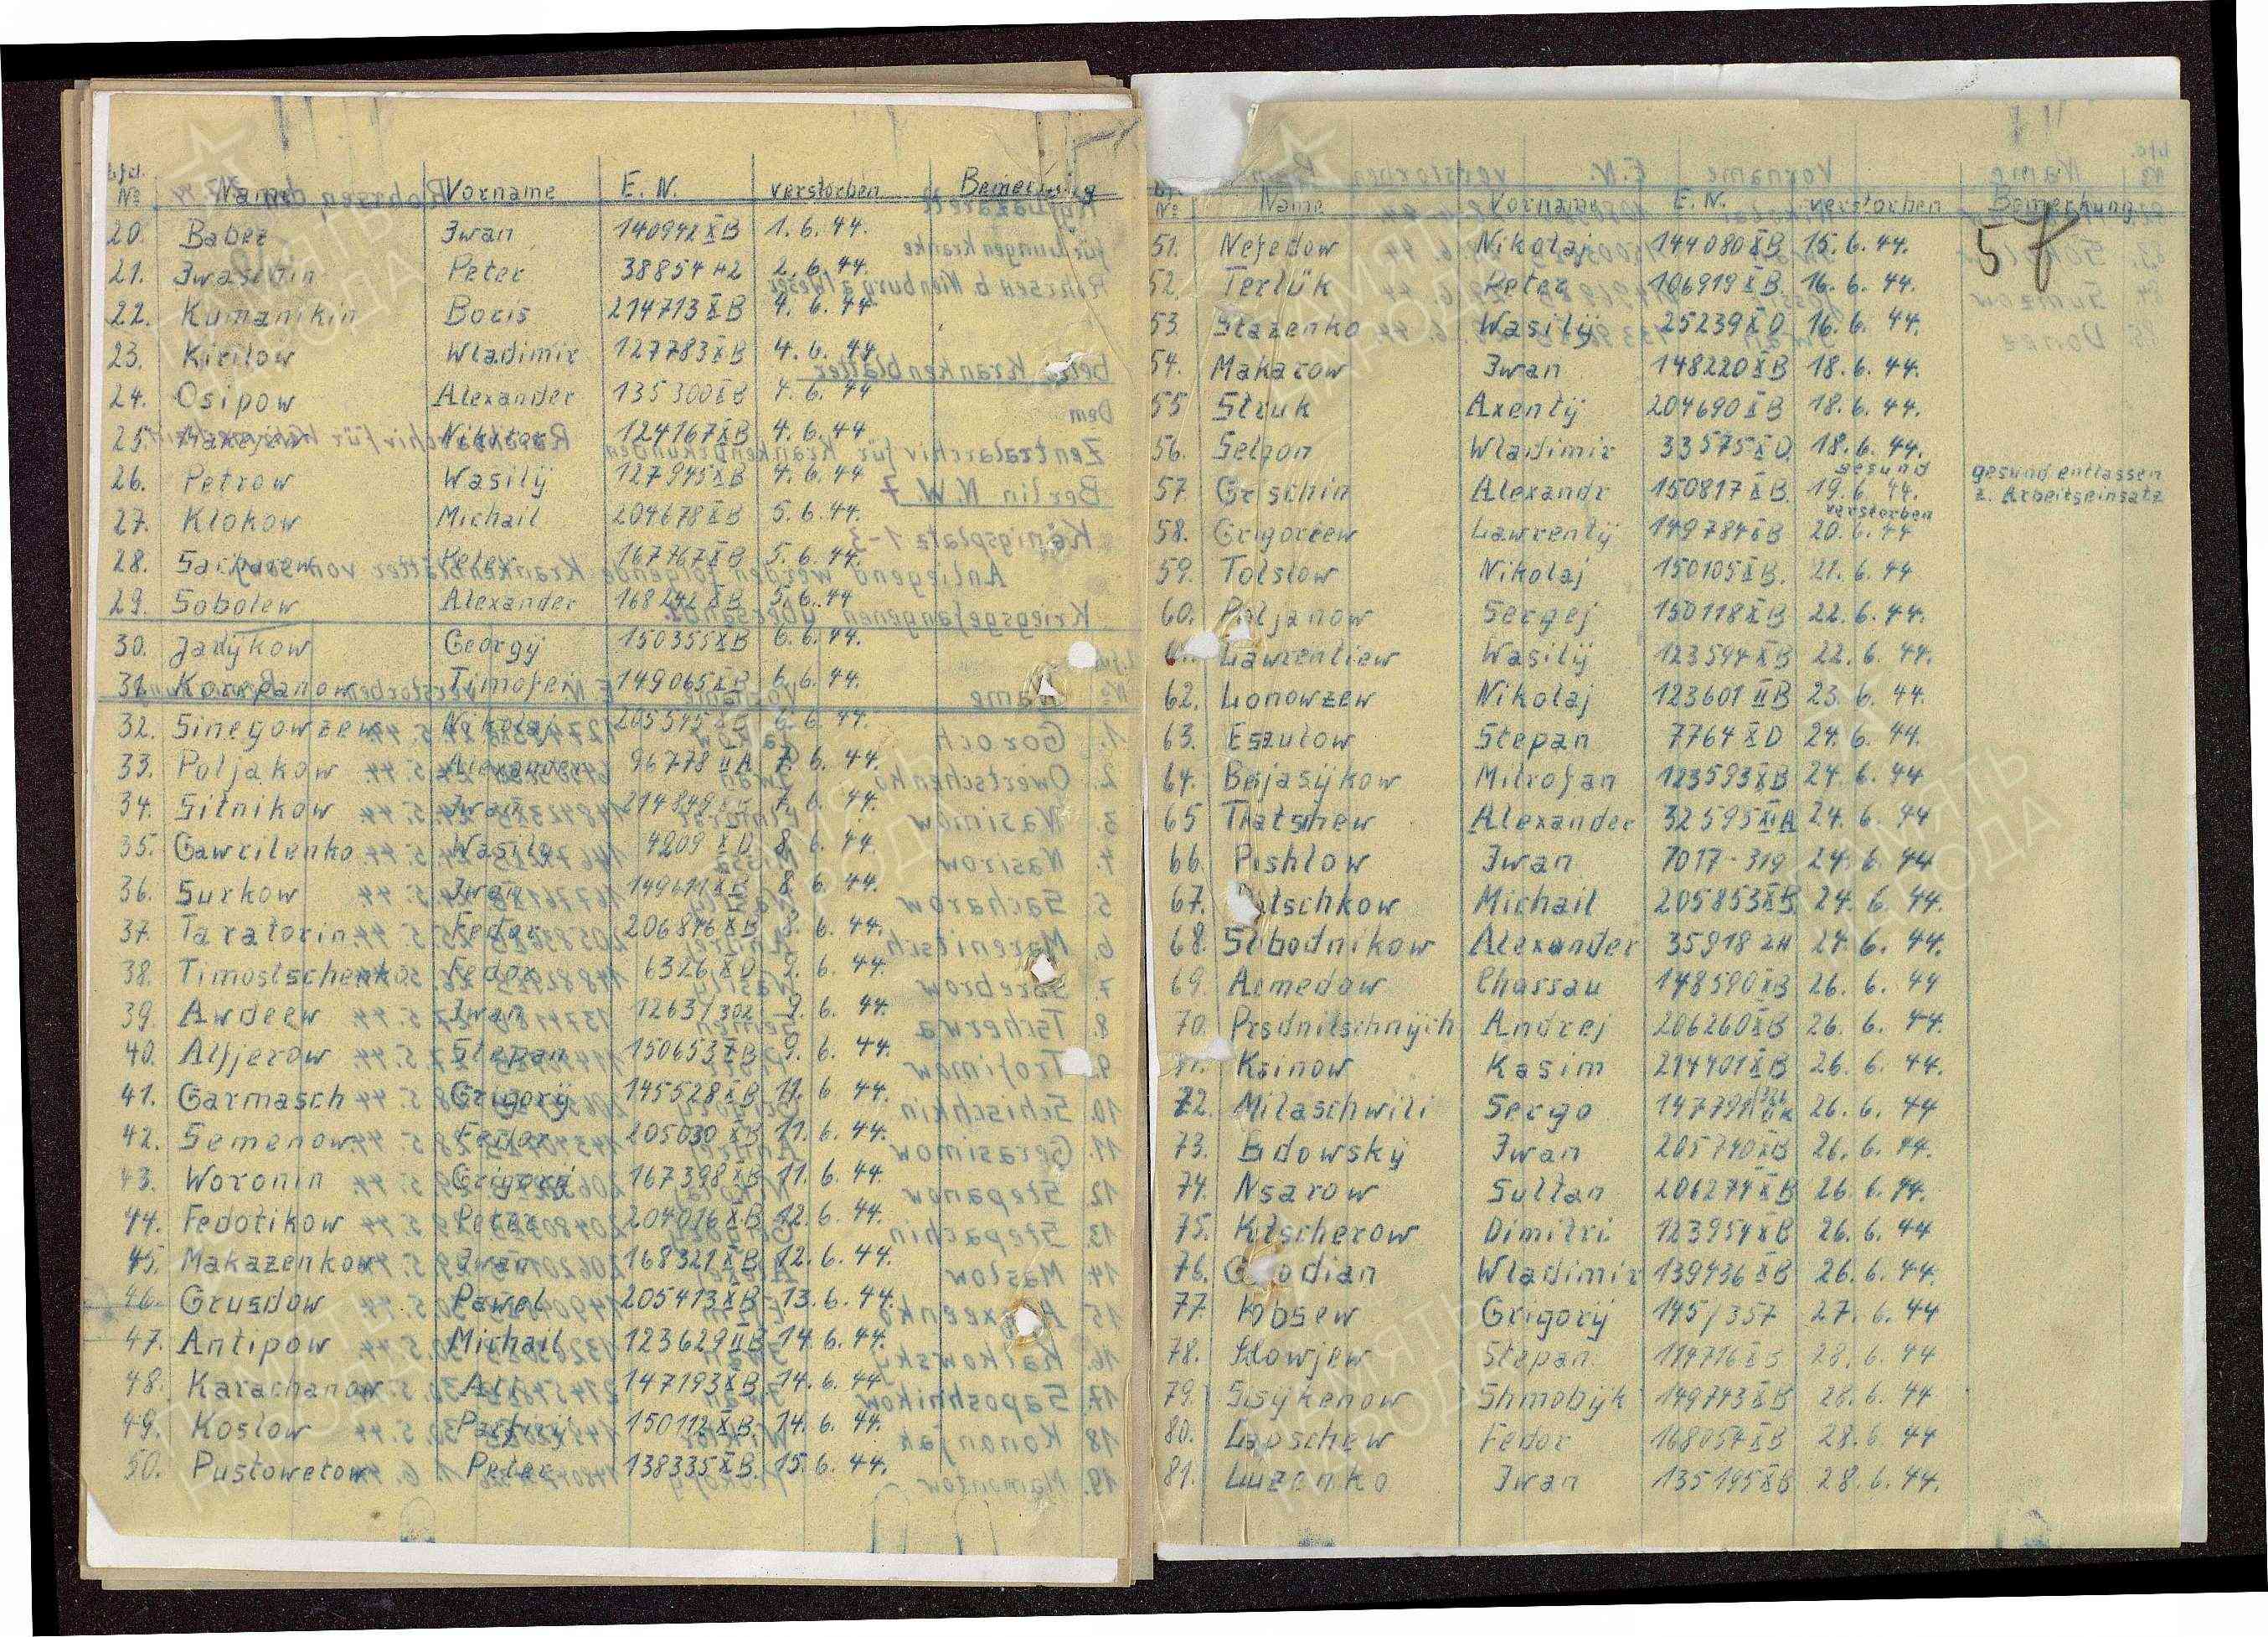 lfd. № Name Vorname E. N. verstorben Bemerkung
20. Babez Iwan 140942 XB 1. 6. 44.
21. Iwaschin Peter 38854 H2 2. 6. 44.
22. Kumanikin Boris 214713 XB 4. 6. 44
23. Kirilow Wladimir 127783 XB 4. 6. 44
24. Osipow Alexander 135300 XB 4. 6. 44
25. 124167 XB 4. 6. 44
26. Petrow Wasilÿ 127945 XB 4. 6. 44
27. Klokow Michail 204678 XB 5. 6. 44.
28. Sacharew Peter 167767 XB 5. 6. 44.
29. Sobolew Alexander 168242 XB 5. 6. 44
30. Jadÿkow Georgÿ 150355 XB 6. 6. 44.
31. Korepanow Timofei 149065 XB 6. 6. 44.
32. Sinegowzew Nikolaj 205545 XB 6. 6. 44.
33. Poljakow Alexander 96778 II A 7. 6. 44.
34. Sitnikow Iwan 214849 XB 7. 6. 44.
35. Gawrilenko Wasilÿ 4209 XD 8. 6. 44.
36. Surkow Iwan 149671 XB 8. 6. 44.
37. Taratorin Fedor 206846 XB 8. 6. 44.
38. Timostschenko Fedor 6326 XD 9. 6. 44.
39. Awdeew Iwan 1263/302 9. 6. 44.
40. Alfjerow Stepan 150653 XB 9. 6. 44.
41. Garmasch Grigorÿ 145528 XB 11. 6 44.
42. Semenow Fedor 205030 XB 11. 6. 44.
43. Woronin Grigorÿ 167398 XB 11. 6. 44.
44. Fedotikow Peter 204016 XB 12. 6. 44.
45. Makazenkow Iwan 168321 XB 12. 6. 44.
46. Grusdow Pawel 205413 XB 13. 6. 44.
47. Antipow Michail 123629 II B 14. 6. 44.
48. Karachanow Ali 147193 XB 14. 6. 44
49. Koslow 150112 XB 14. 6. 44.
50. Pustowetow Peter 138335 XB 15. 6. 44.
57
lfd. № Name Vorname E. N. verstorben Bemerkung
51. Nefedow Nikolaj 144080 XB 15. 6. 44.
52. Terlük Peter 106919 XB 16. 6. 44.
53. Stazenko Wasilÿ 25239 XD 16. 6. 44.
54. Makarow Iwan 148220 XB 18. 6. 44.
55 Struk Axentÿ 204690 XB 18. 6. 44.
56. Selzon Wladimir 33575 XD 18. 6. 44.
gesund gesund entlassen
57. Grischin Alexandr 150817 XB 19. 6. 44. z. Arbeitseinsatz
verstorben
58. Grigoreew Lawrentÿ 149784 XB 20. 6. 44
59. Tolstow Nikolaj 150105 XB. 21. 6. 44
60. Poljanow Sergej 150118 XB 22. 6. 44.
Lawrentiew Wasilÿ 123594 XB 22. 6. 44.
62. Lonowzew Nikolaj 123601 II B 23. 6. 44.
63. Eszulow Stepan 7764 XD 24. 6. 44.
64. Bejasÿkow Mitrofan 123593 XB 24. 6. 44
65 Tratsmew Alexander 32595 XI A 24. 6. 44
66. Peshlow Iwan 7017-319 24. 6. 44
67. Michail 205853 XB 24. 6. 44.
68. Slbodnikow Alexander 35918 2H 24. 6. 44.
69. Acmedow Chassau 148590 XB 26. 6. 44
70. Prsdnitschnÿch Andrej 206260 XB 26. 6. 44.
Ksinow Kasim 214401 XB 26. 6. 44.
72. Milaschwili Sergo 26. 6. 44
73. Bdowskÿ Iwan 205740 XB 26. 6. 44.
74. Nsarow Sultan 206274 XB 26. 6. 44.
75. Ktscherow Dimitri 123954 XB 26. 6. 44
76. Wladimir 139436 XB 26. 6. 44.
77. Kobsew Grigorÿ 145/357 27. 6. 44
78. Slowjew Stepan 114716 XB 28. 6. 44
79. Ssÿkenow Shmobÿk 149743 XB 28. 6. 44
80. Lapschew Fedor 168054 XB 28. 6. 44
81. Luzenko Iwan 135195 XB 28. 6. 44.